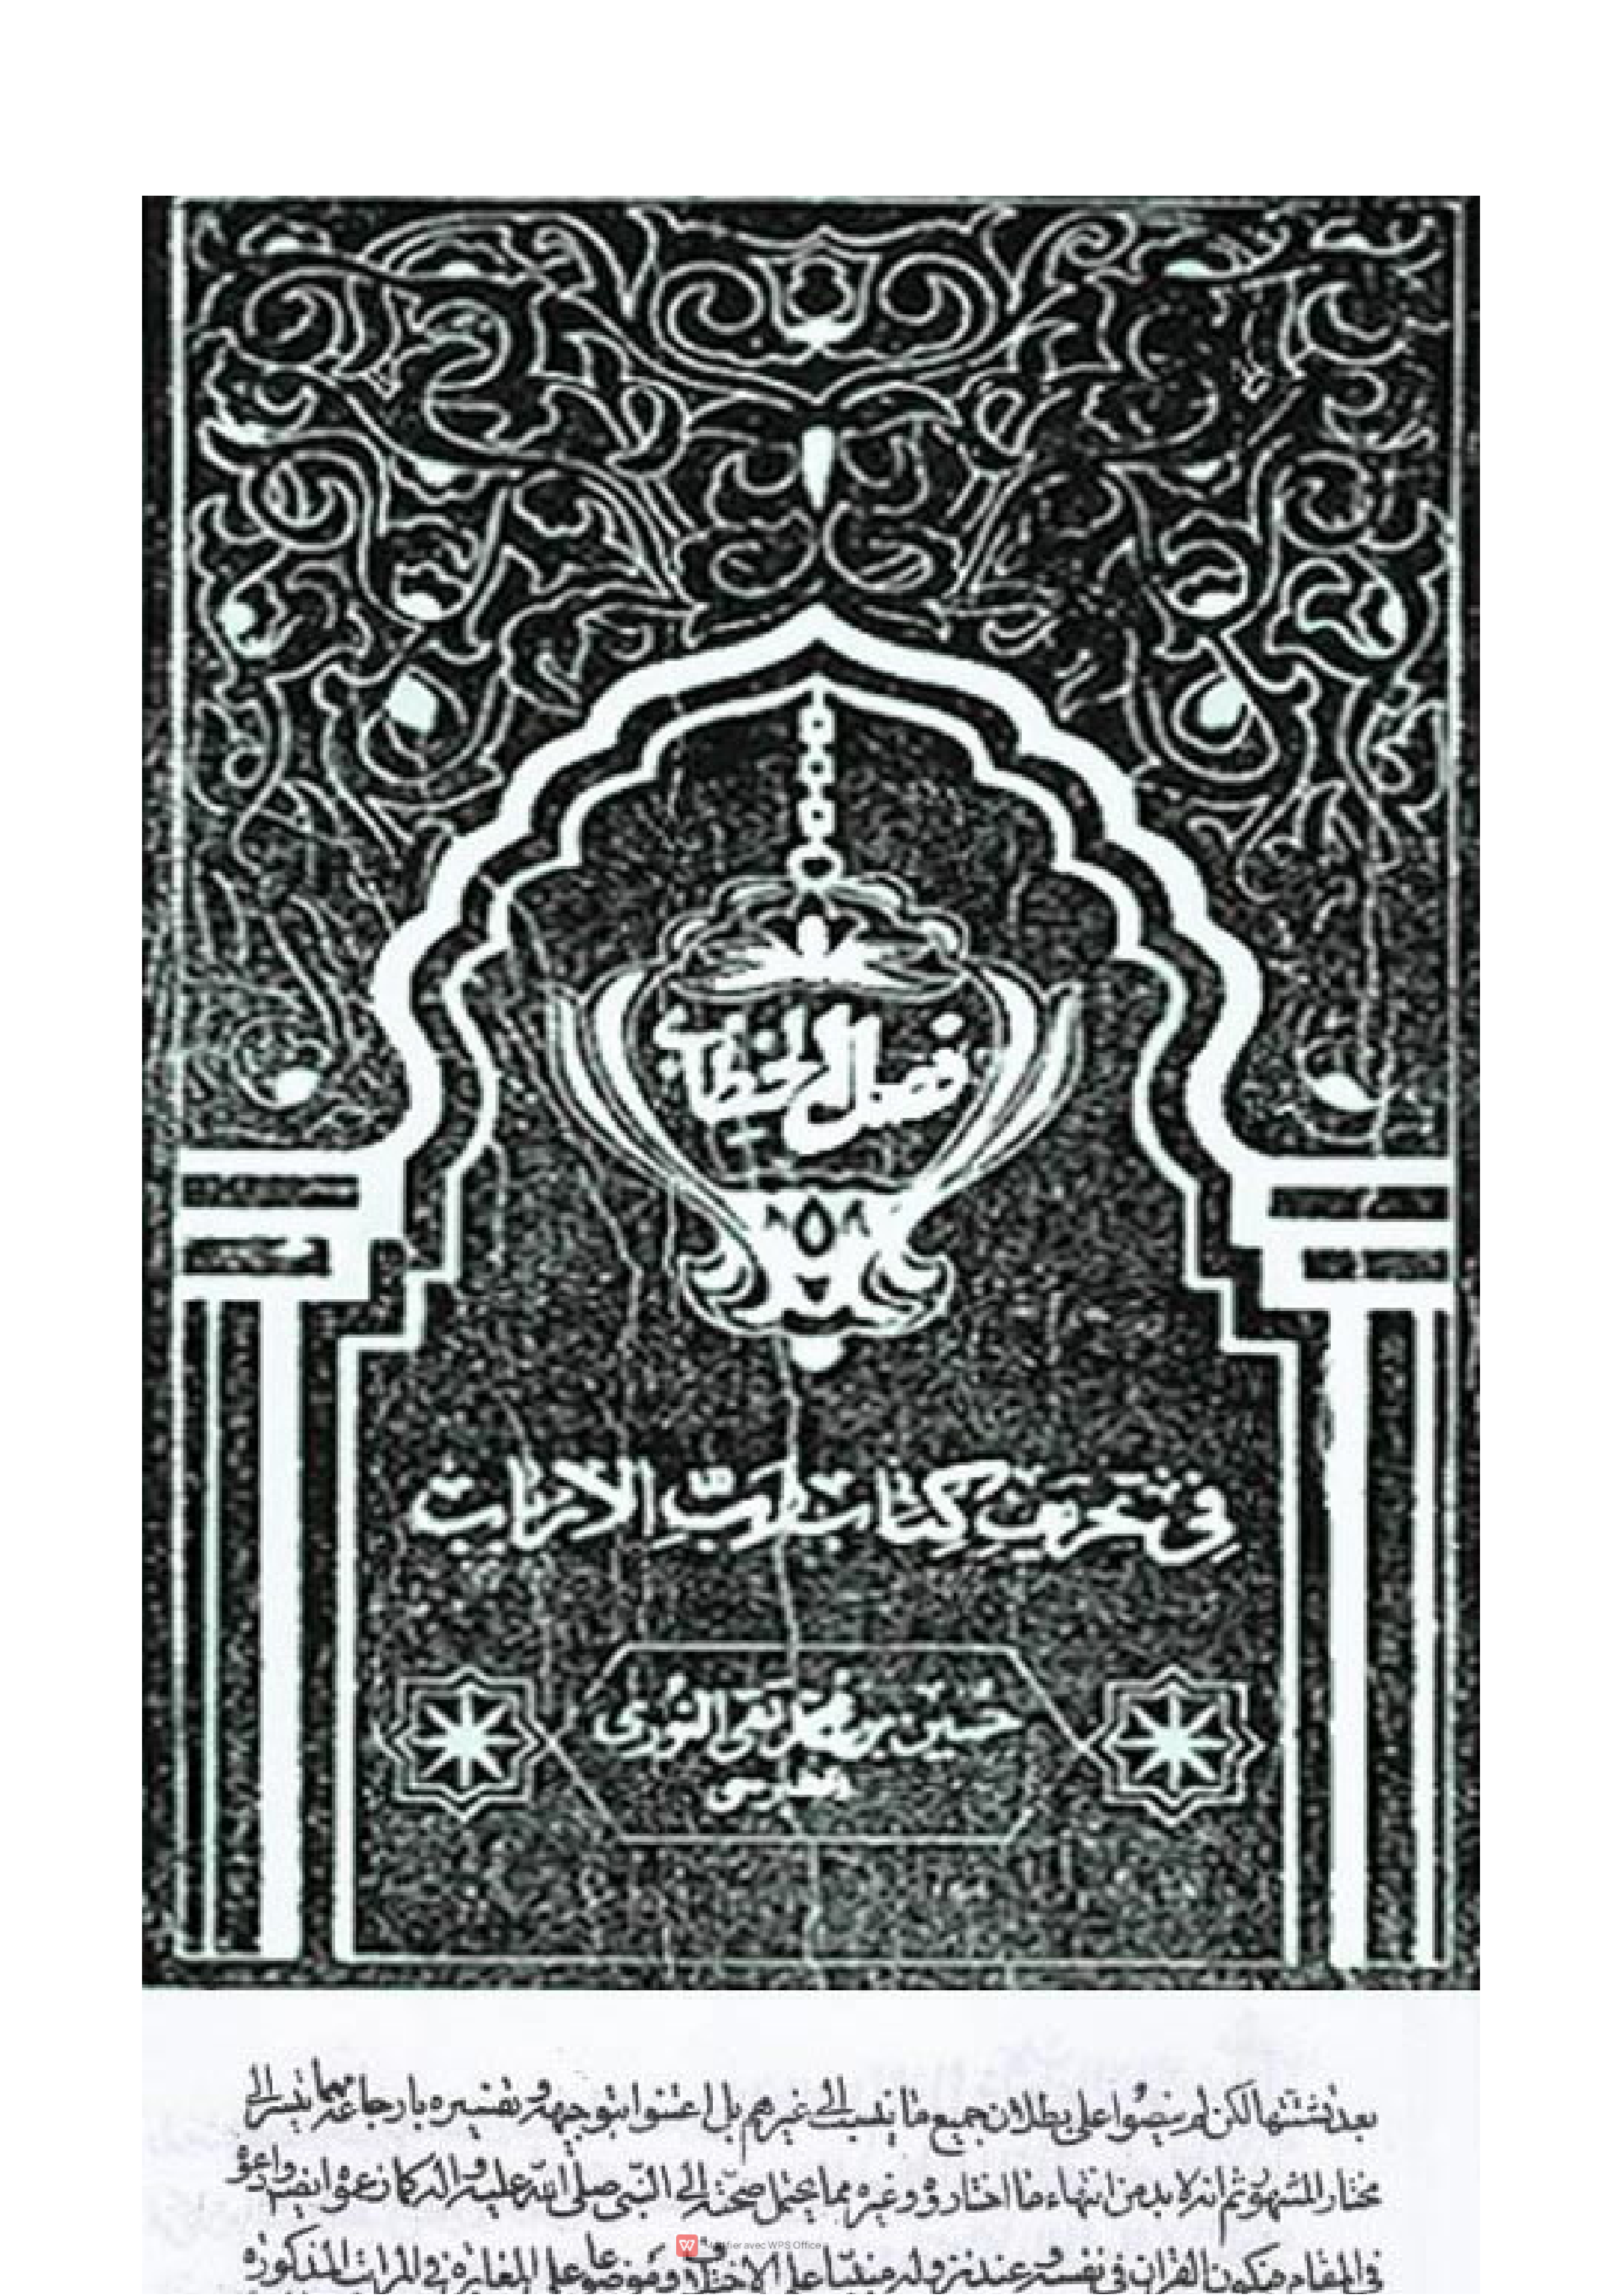 فصل الخطاب
في تحريف كتاب رب الارباب
حسين بن محمد تقي النوري
الطبرسي
بعد تشتتها لكن لم ينصوا على بطلان جميع ما ينسب الى غيرهم بل اعتنوا بتوجيهه وتفسيره بارجاعه مهما تيسر الى
مختار المشهور ثم انه لا بد من انتهاء ما اختاروه وغيره مما يحتمل صحته الى النبي صلى الله عليه واله كما زعموا
في المقام فيكون القران في نفسه عند نزوله مبنيا على الاختلاف وموضوعا على المغايرة في المراتب المذكورة
fier avec WPS Office